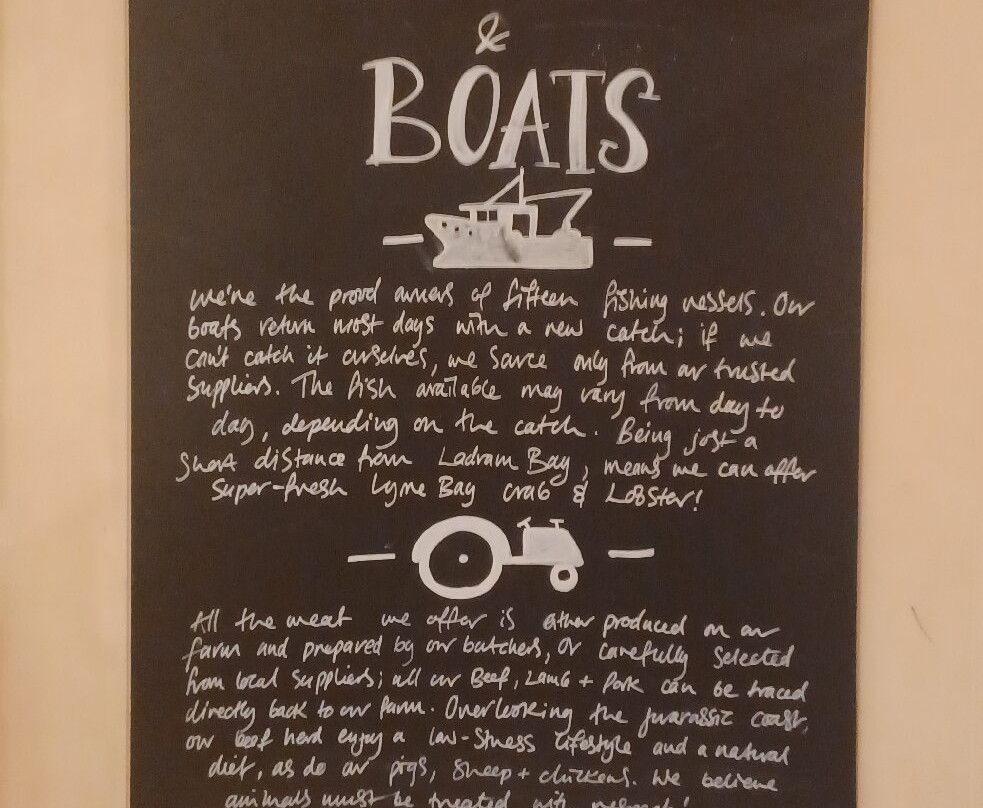 &
BOATS
We're the proud owners of fifteen fishing vessels. Our
boats return most days with a new catch; if we
can't catch it ourselves, we source only from our trusted
suppliers. The fish available may vary from day to
day, depending on the catch. Being just a
short distance from Ladram Bay, means we can offer
super-fresh Lyme Bay crab & Lobster!
All the meat we offer is either produced on our
farm and prepared by our butchers, or carefully selected
from local suppliers; all our Beef, Lamb + Pork can be traced
directly back to our farm. Overlooking the Jurassic coast,
our beef herd enjoy a low-stress lifestyle and a natural
diet, as do our pigs, sheep + chickens. We believe
animals must be treated with respect!